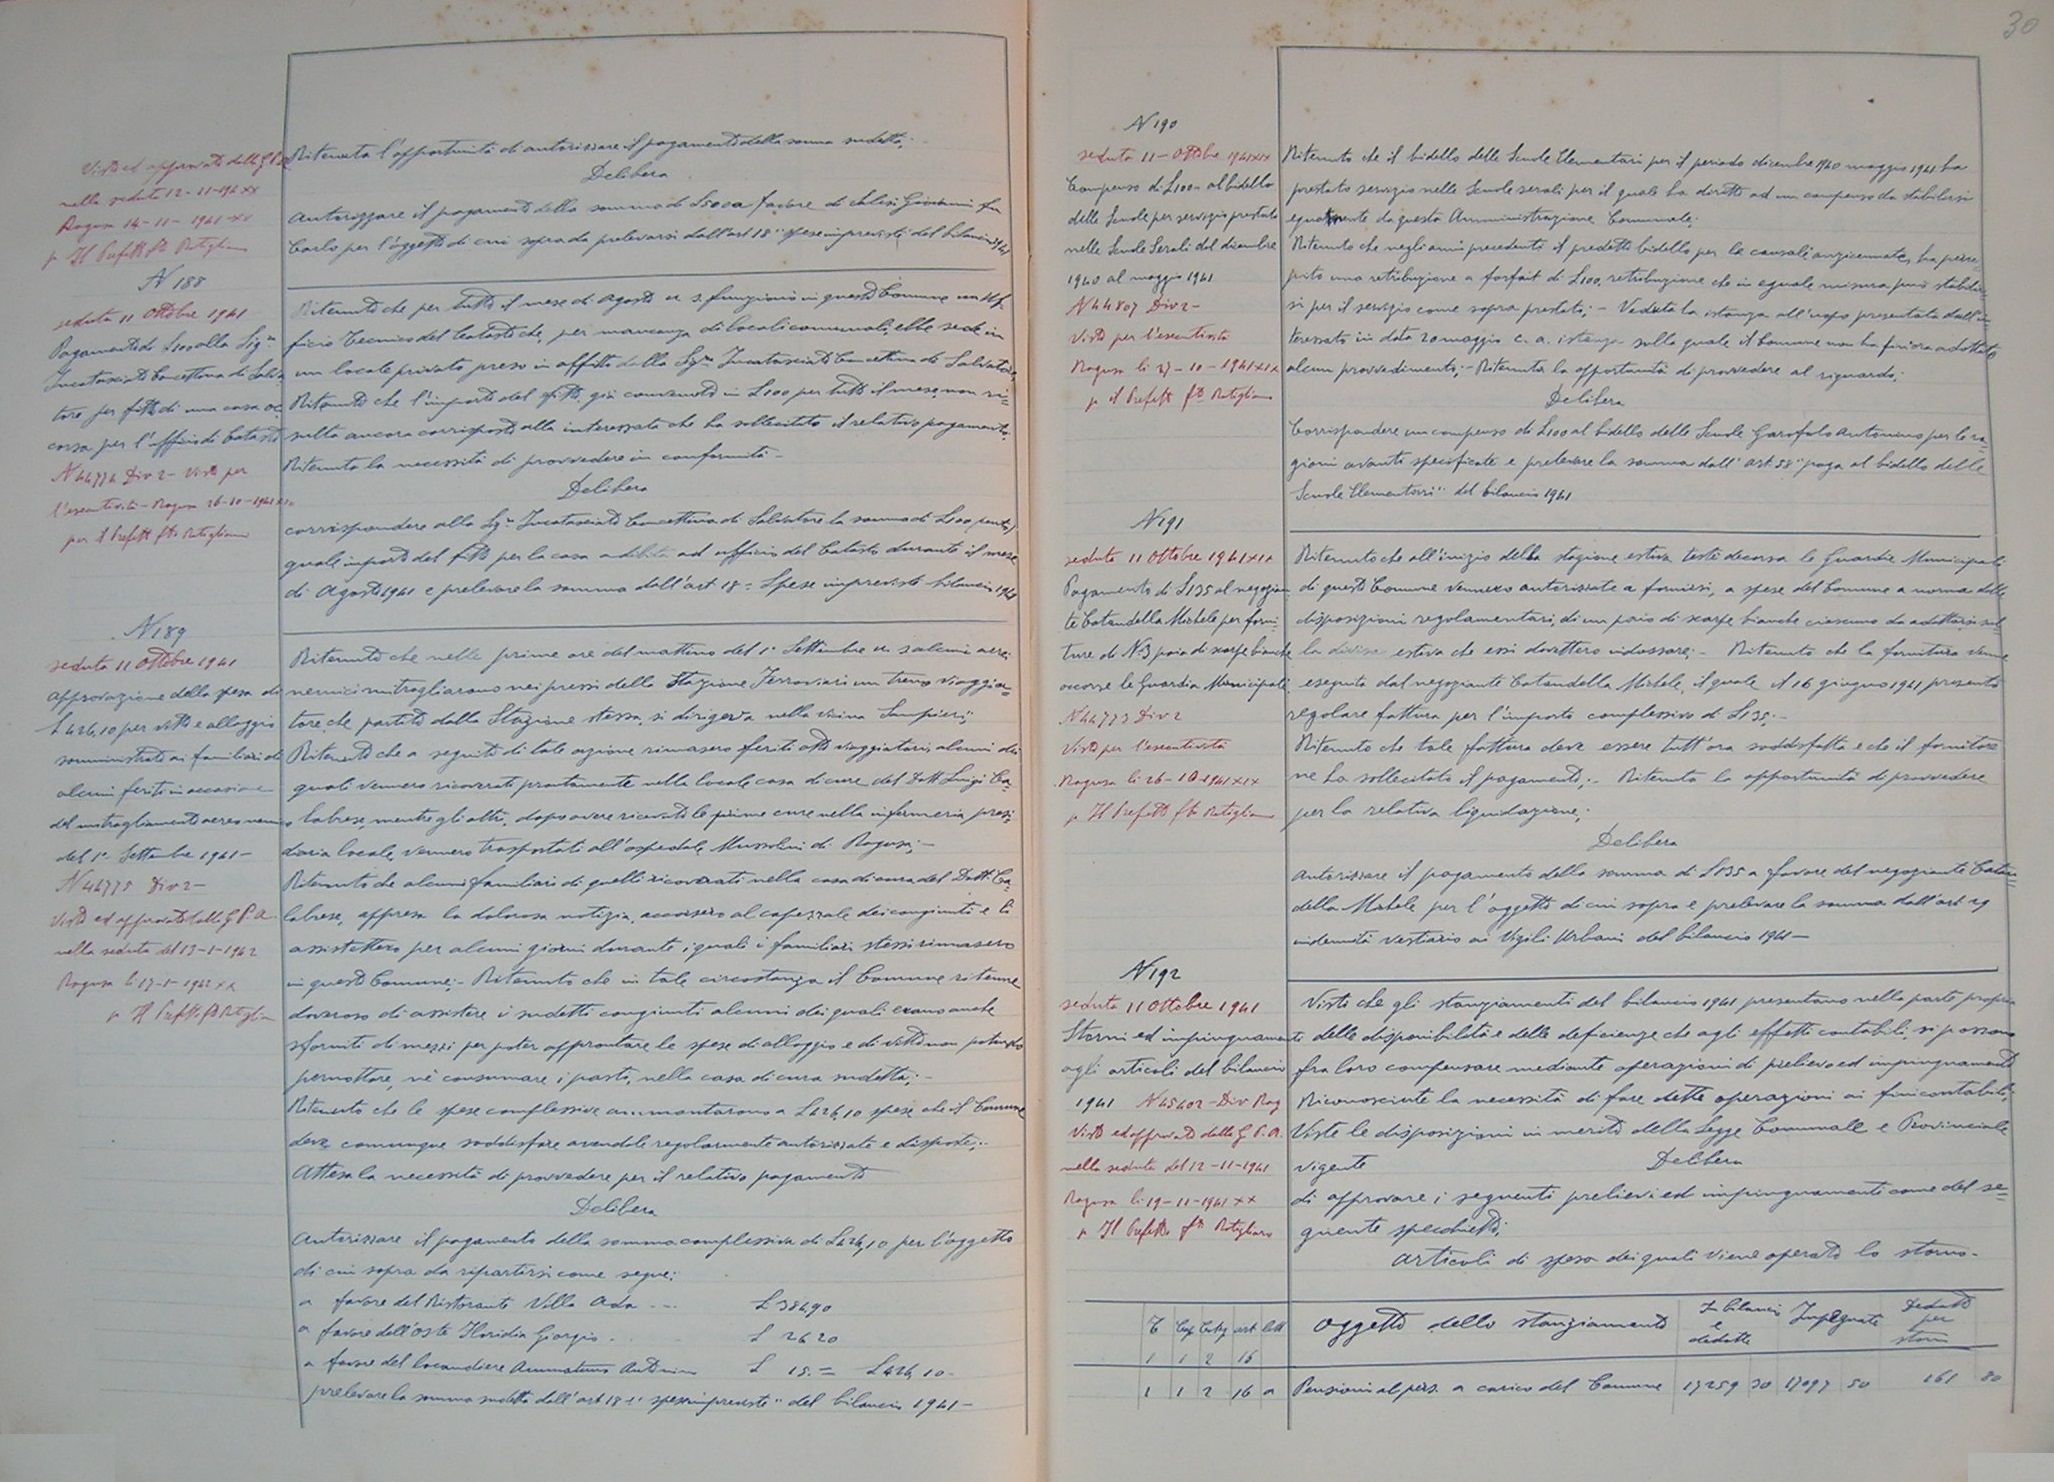 Visto ed approvato dalla G.P.A.
nella seduta 12-11-941 XX
Ragusa 14-11-1941-XX
p. Il Prefetto fto Rutigliano
N 188
seduta 11 Ottobre 1941
Pagamento di L 100 alla Sig.ra
Incatasciato Concettina di Salva
tore per fitto di una casa oc
corsa per l'ufficio di Catasto
N 44774 Div 2 - Visto per
l'esecutività - Ragusa 26-10-1941 XIX
per il Prefetto fto Rutigliano
N 189
seduta 11 Ottobre 1941
approvazione della spesa di
L 426,10 per vitto e alloggio
somministrato ai familiari di
alcuni feriti in occasione
del mitragliamento aereo nemico
del 1° Settembre 1941 -
N 44775 Div 2 -
Visto ed approvato dalla G.P.A.
nella seduta del 13-1-1942
Ragusa li 17-1-1942 XX
p Il Prefetto fto Rutigliano
Ritenuta l'opportunità di autorizzare il pagamento della somma sudetta;
Delibera
autorizzare il pagamento della somma di L 500 a favore di Giovanni fu
Carlo per l'oggetto di cui sopra da prelevarsi dall'art 18 " spese impreviste del bilancio 1941
Ritenuto che per tutto il mese di Agosto u. s. funzionò in questo Comune un Uf-
ficio Tecnico del Catasto che, per mancanza di locali comunali, ebbe sede in
un locale privato preso in affitto dalla Sig.ra Incatasciato Concettina di Salvatore,
Ritenuto che l'importo del fitto, già convenuto in L 100 per tutto il mese, non ri=
sulta ancora corrisposto alla interessata che ha sollecitato il relativo pagamento.
Ritenuta la necessità di provvedere in conformità -
Delibera
corrispondere alla Sig.ra Incatasciato Concettina di Salvatore la somma di L 100
quale importo del fitto per la casa adibita ad ufficio del Catasto durante il mese
di Agosto 1941 e prelevare la somma dall'art 18 = Spese impreviste bilancio 1941
Ritenuto che nelle prime ore del mattino del 1° Settembre u. s. alcuni aerei
nemici mitragliarono nei pressi della Stazione Ferroviari un treno viaggia-
tore, che, partito dalla Stazione stessa, si dirigeva nella vicina Sampieri;
Ritenuto che a seguito di tale azione rimasero feriti otto viaggiatori, alcuni dei
quali vennero ricoverati prontamente nella locale casa di cure del Dott. Luigi Ca-
labrese, mentre gli altri, dopo avere ricevuto le prime cure nella infermeria presi-
diaria locale, vennero trasportati all'ospedale Mussolini di Ragusa; -
Ritenuto che alcuni familiari di quelli ricoverati nella casa di cura del Dott. Ca-
labrese, appresa la dolorosa notizia, accorsero al capezzale dei congiunti e li
assistettero per alcuni giorni durante i quali i familiari stessi rimasero
in questo Comune; - Ritenuto che in tale circostanza il Comune ritenne
doveroso di assistere i sudetti congiunti alcuni dei quali erano anche
sforniti di mezzi per poter affrontare le spese di alloggio e di vitto non potendo
pernottare, nè consumare i pasti, nella casa di cura sudetta; -
Ritenuto che le spese complessive ammontarono a L 426,10 spese che il Comune
deve comunque soddisfare avendole regolarmente autorizzate e disposte;
Attesa la necessità di provvedere per il relativo pagamento
Delibera
autorizzare il pagamento della somma complessiva di L 426,10 per l'oggetto
di cui sopra da ripartirsi come segue:
a favore del Ristorante Villa Ada - - L 384,90
a favore dell'oste Floridia Giorgio . L 26 20
a favore del locandiere Ammatuna Antonino L 15 = L 426,10 -
prelevare la somma sudetta dall'art 18 " spese impreviste " del bilancio 1941 -
30
N 190
seduta 11-Ottobre 1941 XIX
Compenso di L 100 - al bidello
delle Scuole per servizio prestato
nelle Scuole Serali dal dicembre
1940 al maggio 1941
N 44807 Div 2 -
Visto per l'esecutività
Ragusa li 27-10-1941 XIX
p. il Prefetto fto Rutigliano
N 191
seduta 11 Ottobre 1941 XIX
Pagamento di L 135 al negozian
te Catandella Michele per forni-
ture di N. 3 paia di scarpe bianche
occorse le Guardie Municipali
N 44773 Div 2
Visto per l'esecutività
Ragusa li 26-10-1941 XIX
p. Il Prefetto fto Rutigliano
N 192
seduta 11 Ottobre 1941
Storni ed impinguamenti
agli articoli del bilancio
1941 N 45402 - Div Rag
Visto ed approvato dalla G.P.A.
nella seduta del 12-11-1941
Ragusa li 19-11-1941 XX
p Il Prefetto fto Rutigliano
Ritenuto che il bidello delle Scuole Elementari per il periodo dicembre 1940 maggio 1941 ha
prestato servizio nelle Scuole serali per il quale ha diritto ad un compenso da stabilirsi
equamente da questa Amministrazione Comunale;
Ritenuto che negli anni precedenti il predetto bidello per la causale anzicennata, ha perce-
pito una retribuzione a forfait di L 100, retribuzione che in eguale misura può stabilir-
si per il servizio come sopra prestato; - Veduta la istanza all'uopo presentata dall'in-
teressato in data 20 maggio c. a. istanza sulla quale il Comune non ha finora adottato
alcun provvedimento; - Ritenuta la opportunità di provvedere al riguardo;
Delibera
Corrispondere un compenso di L 100 al bidello delle Scuole Garofalo Antonino per le ra-
gioni avanti specificate e prelevare la somma dall'art 58 " paga al bidello delle
Scuole Elementari" del bilancio 1941
Ritenuto che all'inizio della stagione estiva testè decorsa le Guardie Municipali
di questo Comune vennero autorizzate a fornirsi, a spese del Comune a norma delle
disposizioni regolamentari, di un paio di scarpe bianche ciascuno da adattarsi sul-
la divisa estiva che essi dovettero indossare; - Ritenuto che la fornitura venne
eseguita dal negoziante Catandella Michele, il quale il 16 giugno 1941 presentò
regolare fattura per l'importo complessivo di L 135. -
Ritenuto che tale fattura deve essere tutt'ora soddisfatta e che il fornitore
ne ha sollecitato il pagamento; - Ritenuta la opportunità di provvedere
per la relativa liquidazione;
Delibera
autorizzare il pagamento della somma di L 135 a favore del negoziante Catan=
della Michele per l'oggetto di cui sopra e prelevare la somma dall'art 29
indennità vestiario ai Vigili Urbani del bilancio 1941 -
Visto che gli stanziamenti del bilancio 1941 presentano nella parte propria
delle disponibilità e delle deficienze che agli effetti contabili, si possono
fra loro compensare mediante operazioni di prelievo ed impinguamento
Riconosciuta la necessità di fare dette operazioni ai fini contabili,
Viste le disposizioni in merito della Legge Comunale e Provinciale
vigente Delibera
di approvare i seguenti prelievi ed impinguamenti come del se=
guente specchietto;
articoli di spesa dei quali viene operato lo storno -
T Cap Categ art lett Oggetto dello stanziamento In bilancio e dedotte Impegnate Dedotto per storno
1 1 2 16
1 1 2 16 a Pensioni al pers. a carico del Comune 17259 30 17097 50 161 80